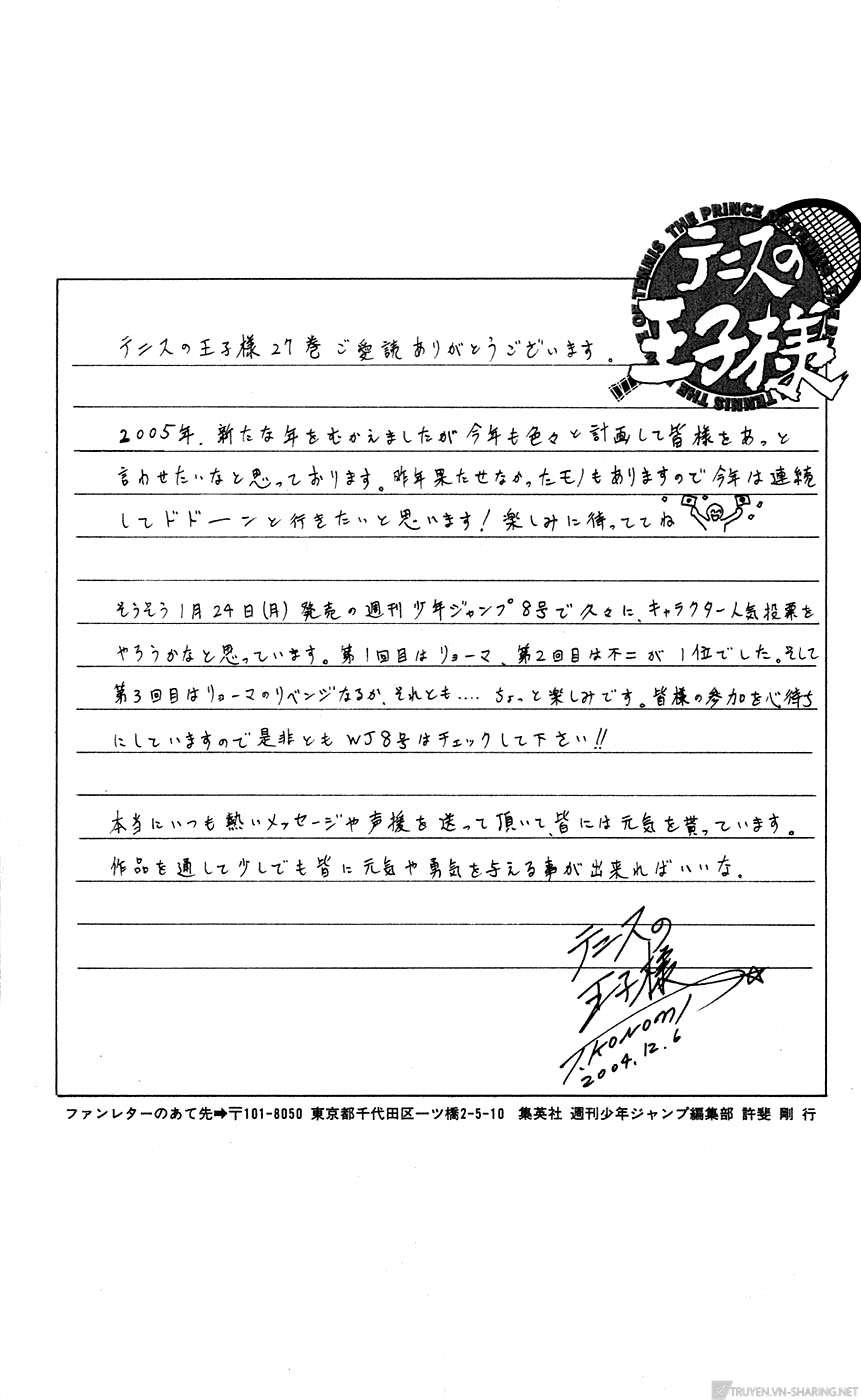 THE PRINCE OF TENNIS THE PRINCE OF TENNIS
テニスの
王子様
テニスの王子様27巻ご愛読ありがとうございます。
2005年、新たな年をむかえましたが今年も色々と計画して皆様をあっと
言わせたいなと思っております。昨年果たせなかったモノもありますので今年は連続
してドドーンと行きたいと思います!楽しみに待っててね
そうそう1月24日(月)発売の週刊少年ジャンプ8号で久々に、キャラクター人気投票を
やろうかなと思っています。第1回目はリョーマ、第2回目は不二が1位でした。そして
第3回目はリョーマのリベンジなるか、それとも‥‥ちょっと楽しみです。皆様の参加を心待ち
にしていますので是非ともWJ8号はチェックして下さい!!
本当にいつも熱いメッセージや声援を送って頂いて、皆には元気を貰っています。
作品を通して少しでも皆に元気や勇気を与える事が出来ればいいな。
テニスの
王子様
T.KONOMI
2004.12.6
ファンレターのあて先➡〒101-8050 東京都千代田区一ツ橋2-5-10 集英社 週刊少年ジャンプ編集部 許斐 剛 行
TRUYEN.VN-SHARING.NET